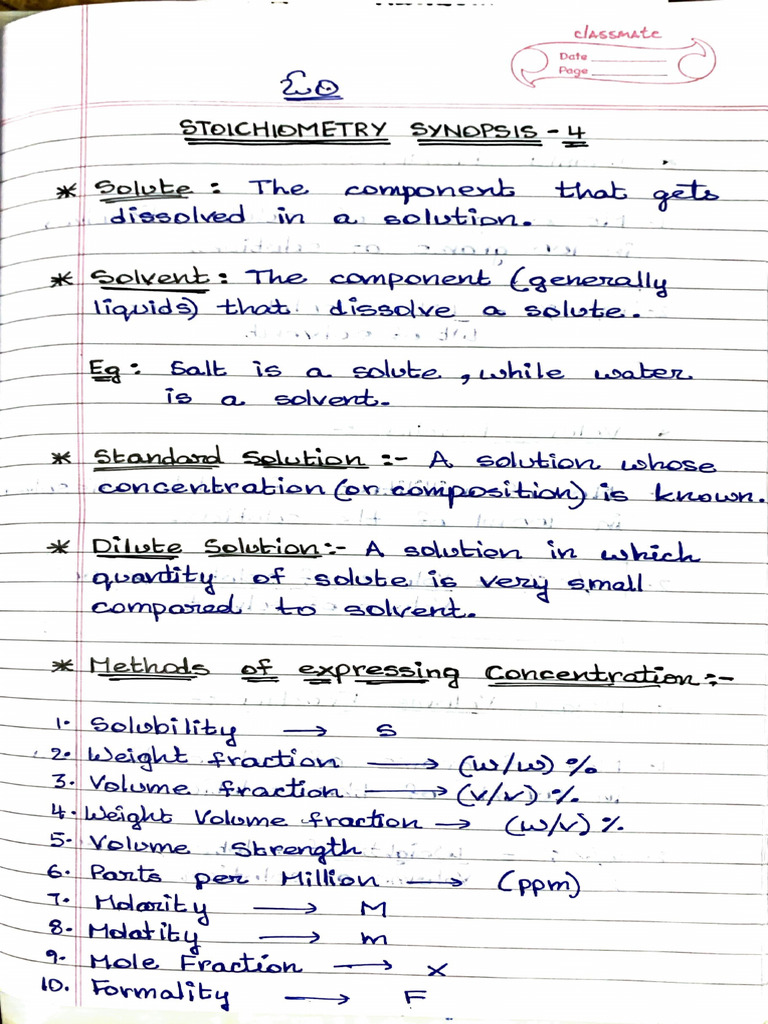 classmate
Date
Page
ఓం
STOICHIOMETRY SYNOPSIS - 4
* Solute : The component that gets
dissolved in a solution.
* Solvent : The component (generally
liquids) that dissolve a solute.
Eg : Salt is a solute, while water
is a solvent.
* Standard Solution :- A solution whose
concentration (or composition) is known.
* Dilute Solution :- A solution in which
quantity of solute is very small
compared to solvent.
* Methods of expressing Concentration :-
1. Solubility → S
2. Weight fraction → (w/w) %
3. Volume fraction → (v/v) %
4. Weight Volume fraction → (w/v) %
5. Volume Strength
6. Parts per Million → (ppm)
7. Molarity → M
8. Molality → m
9. Mole Fraction → x
10. Formality → F